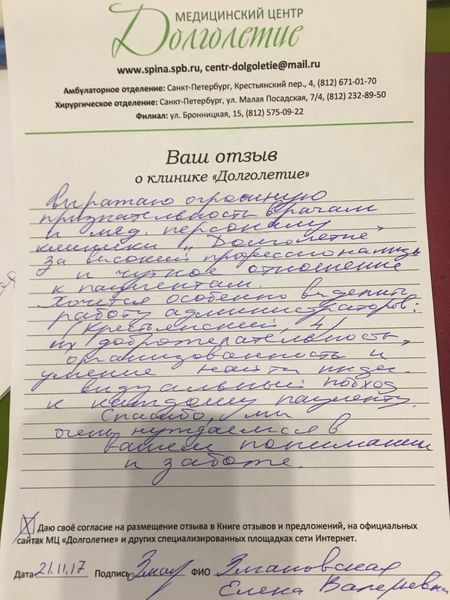 МЕДИЦИНСКИЙ ЦЕНТР
Долголетие
www.spina.spb.ru, centr-dolgoletie@mail.ru
Амбулаторное отделение: Санкт-Петербург, Крестьянский пер., 4, (812) 671-01-70
Хирургическое отделение: Санкт-Петербург, ул. Малая Посадская, 7/4, (812) 232-89-50
Филиал: ул. Бронницкая, 15, (812) 575-09-22
Ваш отзыв
о клинике «Долголетие»
Выражаю огромную
признательность врачам
и мед. персоналу
клиники „Долголетие"
за высокий профессионализм
и чуткое отношение
к пациентам.
Хочется особенно выделить
работу администраторов:
(Крестьянский, 4)
их доброжелательность,
организованность и
умение найти инди-
видуальный подход
к каждому пациенту.
Спасибо, мы
очень нуждаемся в
вашем понимании
и заботе.
Даю своё согласие на размещение отзыва в Книге отзывов и предложений, на официальных
сайтах МЦ «Долголетие» и других специализированных площадках сети Интернет.
Дата 21.11.17 Подпись ФИО Змановская
Елена Валерьевна